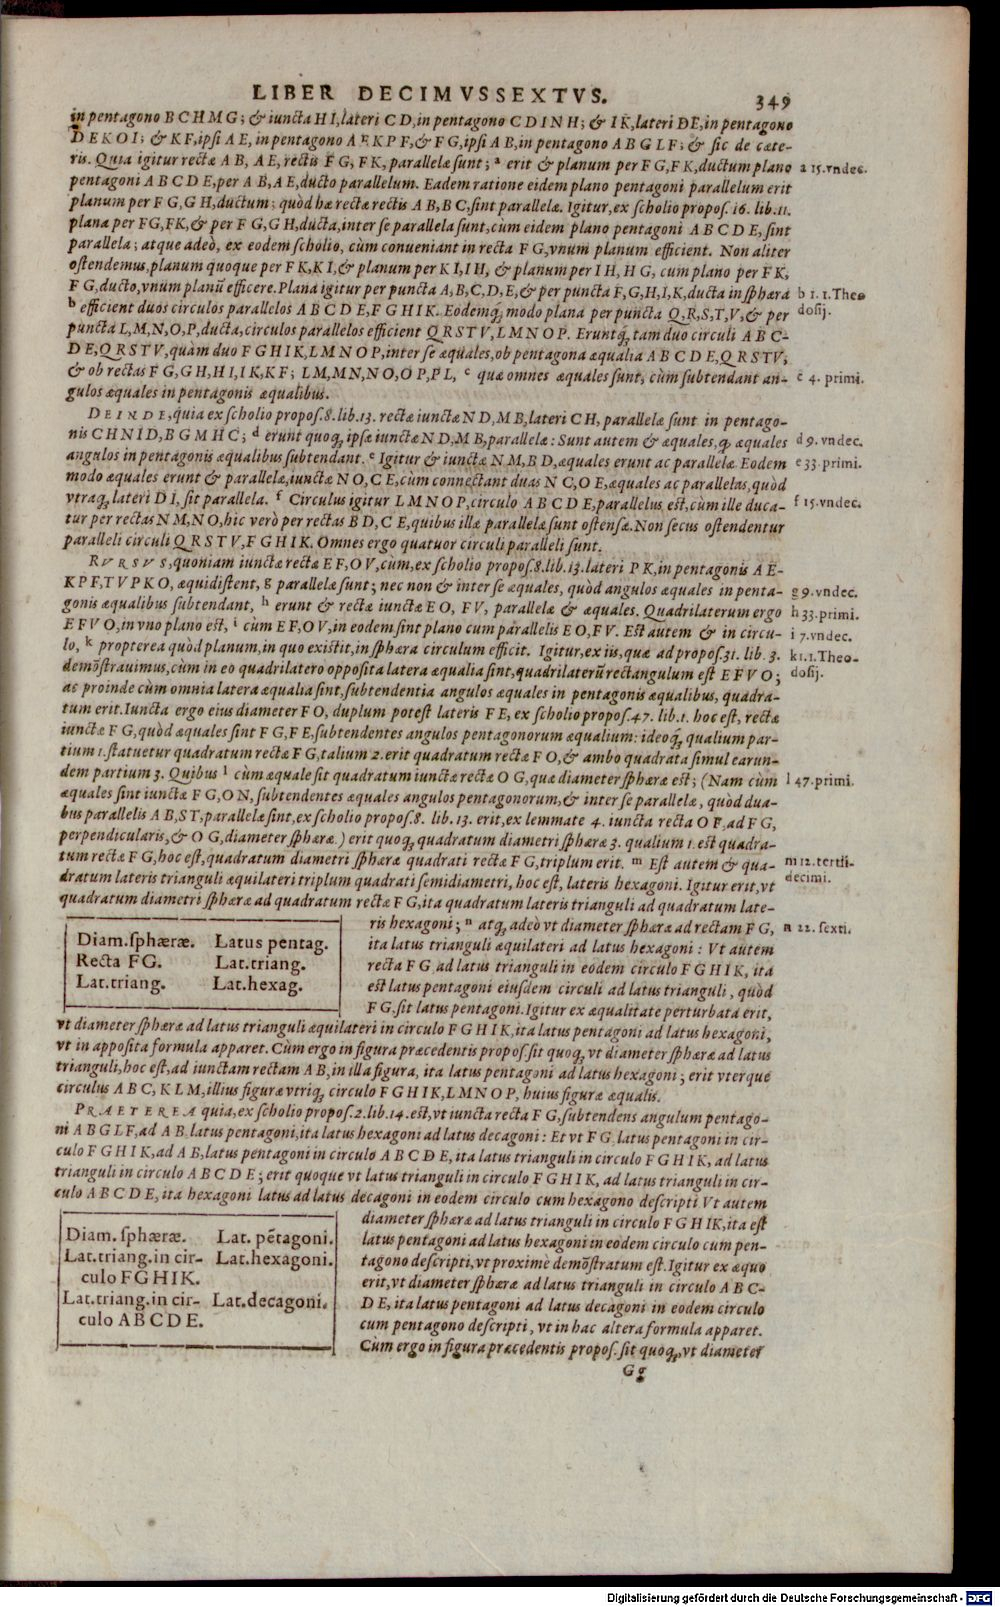 LIBER DECIMVSSEXTVS. 349
in pentagono BCHMG; & iuncta HI, lateri CD, in pentagono CDINH; & IK, lateri DE, in pentagono
DEKOI; & KF, ipsi AE, in pentagono AEKPF, & FG, ipsi AB, in pentagono ABGLF; & sic de cæte-
ris. Quia igitur rectæ AB, AE, rectis FG, FK, parallelæ sunt; a erit & planum per FG, FK, ductum plano
a 15. vndec.
pentagoni ABCDE, per AB, AE, ducto parallelum. Eadem ratione eidem plano pentagoni parallelum erit
planum per FG, GH, ductum; quòd hæ rectæ rectis AB, BC, sint parallelæ. Igitur, ex scholio propos. 16. lib. 11.
plana per FG, FK, & per FG, GH, ducta, inter se parallela sunt, cùm eidem plano pentagoni ABCDE, sint
parallela; atque adeò, ex eodem scholio, cùm conueniant in recta FG, vnum planum efficient. Non aliter
ostendemus, planum quoque per FK, KI, & planum per KI, IH, & planum per IH, HG, cum plano per FK,
FG, ducto, vnum planũ efficere. Plana igitur per puncta A, B, C, D, E, & per puncta F, G, H, I, K, ducta in sphæra
b 1. 1. Theo
b efficient duos circulos parallelos ABCDE, FGHIK. Eodemq; modo plana per puncta Q, R, S, T, V, & per
dosij.
puncta L, M, N, O, P, ducta, circulos parallelos efficient QRSTV, LMNOP. Eruntq; tam duo circuli ABC-
DE, QRSTV, quàm duo FGHIK, LMNOP, inter se æquales, ob pentagona æqualia ABCDE, QRSTV;
& ob rectas FG, GH, HI, IK, KF; LM, MN, NO, OP, PL, c quæ omnes æquales sunt; cùm subtendant an-
c 4. primi.
gulos æquales in pentagonis æqualibus.
DEINDE, quia ex scholio propos. 8. lib. 13. rectæ iunctæ ND, MB, lateri CH, parallelæ sunt in pentago-
nis CHNID, BGMHC; d erunt quoq; ipsæ iunctæ ND, MB, parallelæ: Sunt autem & æquales, q; æquales
d 9. vndec.
angulos in pentagonis æqualibus subtendant. e Igitur & iunctæ NM, BD, æquales erunt ac parallelæ. Eodem
e 33. primi.
modo æquales erunt & parallelæ, iunctæ NO, CE, cùm connectant duas NC, OE, æquales ac parallelas, quòd
vtraq; lateri DI, sit parallela. f Circulus igitur LMNOP, circulo ABCDE, parallelus est, cùm ille duca-
f 15. vndec.
tur per rectas NM, NO, hic verò per rectas BD, CE, quibus illæ parallelæ sunt ostensæ. Non secus ostendentur
paralleli circuli QRSTV, FGHIK. Omnes ergo quatuor circuli paralleli sunt.
RVRSVS, quoniam iunctæ rectæ EF, OV, cùm, ex scholio propos. 8. lib. 13. lateri PK, in pentagonis AE-
KPF, TVPKO, æquidistent, g parallelæ sunt; nec non & inter se æquales, quòd angulos æquales in penta-
g 9. vndec.
gonis æqualibus subtendant, h erunt & rectæ iunctæ EO, FV, parallelæ & æquales. Quadrilaterum ergo
h 33. primi.
EFVO, in vno plano est, i cùm EF, OV, in eodem sint plano cum parallelis EO, FV. Est autem & in circu-
i 7. vndec.
lo, k propterea quòd planum, in quo existit, in sphæra circulum efficit. Igitur, ex iis, quæ ad propos. 31. lib. 3.
k 1. 1. Theo-
demõstrauimus, cùm in eo quadrilatero opposita latera æqualia sint, quadrilaterũ rectangulum est EFVO;
dosij.
ac proinde cùm omnia latera æqualia sint, subtendentia angulos æquales in pentagonis æqualibus, quadra-
tum erit. Iuncta ergo eius diameter FO, duplum potest lateris FE, ex scholio propos. 47. lib. 1. hoc est, rectæ
iunctæ FG, quòd æquales sint FG, FE, subtendentes angulos pentagonorum æqualium: ideoq; qualium par-
tium 1. statuetur quadratum rectæ FG, talium 2. erit quadratum rectæ FO, & ambo quadrata simul earun-
dem partium 3. Quibus l cùm æquale sit quadratum iunctæ rectæ OG, quæ diameter sphæræ est; (Nam cùm
l 47. primi.
æquales sint iunctæ FG, ON, subtendentes æquales angulos pentagonorum, & inter se parallelæ, quòd dua-
bus parallelis AB, ST, parallelæ sint, ex scholio propos. 8. lib. 13. erit, ex lemmate 4. iuncta recta OF, ad FG,
perpendicularis, & OG, diameter sphæræ.) erit quoq; quadratum diametri sphæræ 3. qualium 1. est quadra-
tum rectæ FG, hoc est, quadratum diametri sphæræ quadrati rectæ FG, triplum erit. m Est autem & qua-
m 12. tertii-
dratum lateris trianguli æquilateri triplum quadrati semidiametri, hoc est, lateris hexagoni. Igitur erit, vt
decimi.
quadratum diametri sphæræ ad quadratum rectæ FG, ita quadratum lateris trianguli ad quadratum late-
ris hexagoni; n atq; adeò vt diameter sphæræ ad rectam FG,
n 22. sexti.
ita latus trianguli æquilateri ad latus hexagoni: Vt autem
recta FG, ad latus trianguli in eodem circulo FGHIK, ita
est latus pentagoni eiusdem circuli ad latus trianguli, quòd
FG, sit latus pentagoni. Igitur ex æqualitate perturbata erit,
Diam. sphæræ. Latus pentag.
Recta FG. Lat. triang.
Lat. triang. Lat. hexag.
vt diameter sphæræ ad latus trianguli æquilateri in circulo FGHIK, ita latus pentagoni ad latus hexagoni,
vt in apposita formula apparet. Cùm ergo in figura præcedentis propos. sit quoq; vt diameter sphæræ ad latus
trianguli, hoc est, ad iunctam rectam AB, in illa figura, ita latus pentagoni ad latus hexagoni; erit vterque
circulus ABC, KLM, illius figuræ vtriq; circulo FGHIK, LMNOP, huius figuræ æqualis.
PRAETEREA quia, ex scholio propos. 2. lib. 14. est, vt iuncta recta FG, subtendens angulum pentago-
ni ABGLF, ad AB, latus pentagoni, ita latus hexagoni ad latus decagoni: Et vt FG, latus pentagoni in cir-
culo FGHIK, ad AB, latus pentagoni in circulo ABCDE, ita latus trianguli in circulo FGHIK, ad latus
trianguli in circulo ABCDE; erit quoque vt latus trianguli in circulo FGHIK, ad latus trianguli in cir-
culo ABCDE, ita hexagoni latus ad latus decagoni in eodem circulo cum hexagono descripti Vt autem
diameter sphæræ ad latus trianguli in circulo FGHIK, ita est
latus pentagoni ad latus hexagoni in eodem circulo cum pen-
tagono descripti, vt proximè demõstratum est. Igitur ex æquo
erit, vt diameter sphæræ ad latus trianguli in circulo ABC-
DE, ita latus pentagoni ad latus decagoni in eodem circulo
cum pentagono descripti, vt in hac altera formula apparet.
Cùm ergo in figura præcedentis propos. sit quoq; vt diameter
Diam. sphæræ. Lat. pẽtagoni.
Lat. triang. in cir- Lat. hexagoni.
culo FGHIK.
Lat. triang. in cir- Lat. decagoni.
culo ABCDE.
Gg
Digitalisierung gefördert durch die Deutsche Forschungsgemeinschaft - DFG